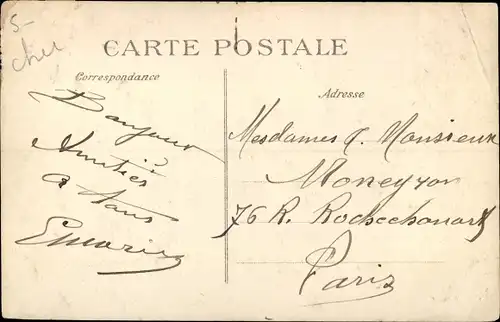 5-
cher
CARTE POSTALE
Correspondance
Adresse
Bonjour
Amitiés
a tous
Mesdames & Monsieur
Moneyron
76 R. Rochechouart
Paris